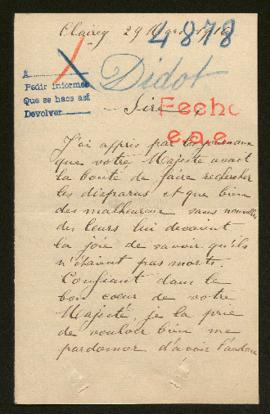 Clairey 29 1916
4878
Didot
A
Pedir informes
Que se haga así
Devolver
Sire
Fecho
e.o.e.
J'ai appris par les journaux
que votre Majesté avait
la bonté de faire rechercher
les disparus et que bien
des malheureux sans nouvelles
des leurs lui devaient
la joie de savoir qu'ils
n'étaient pas morts.
Confiant dans le
bon coeur de votre
Majesté, je la prie
de vouloir bien me
pardonner d'avoir l'audace